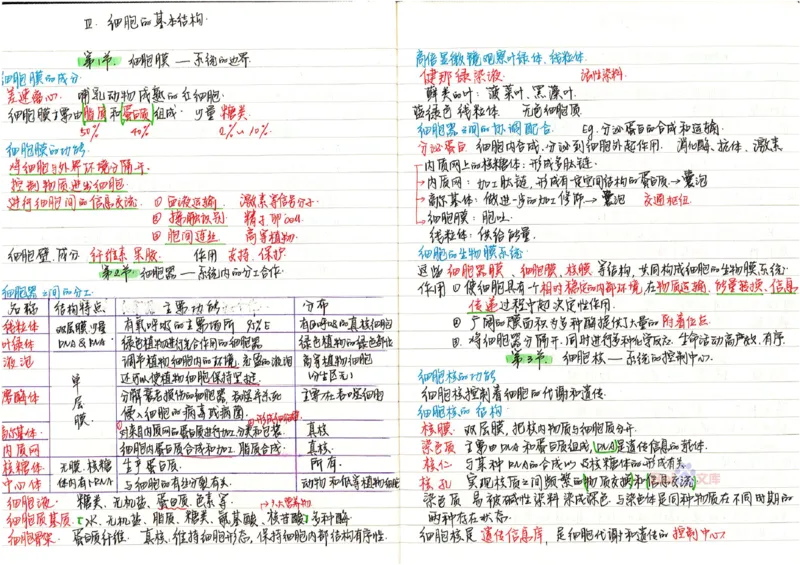 III. 细胞的基本结构.
第1节. 细胞膜 — 系统的边界.
细胞膜的成分
差速离心. 哺乳动物成熟的红细胞.
细胞膜主要由脂质和蛋白质组成. 少量糖类
50% 40% 2%~10%.
细胞膜的功能
将细胞与外界环境分隔开
控制物质进出细胞.
进行细胞间的信息交流: ① 血液运输. 激素等信号分子.
② 接触识别 精子.卵cell.
③ 胞间连丝 高等植物.
细胞壁.成分 纤维素 果胶. 作用 支持.保护
第2节 细胞器 — 系统内的分工合作.
细胞器之间的分工
名称 结构特点 主要功能 分布
线粒体 双层膜.少量 有氧呼吸的主要场所 95%E 有O₂呼吸的真核细胞
叶绿体 DNA & RNA 绿色植物进行光合作用的细胞器. 绿色植物的绿色部位
液泡 调节植物细胞内的环境.充盈的液泡 高等植物细胞
还可以使植物细胞保持坚挺. (分生区无)
单层膜.
溶酶体 分解衰老损伤的细胞器.吞噬并杀死 主要存在动物细胞
侵入细胞的病毒或病菌.
高尔基体. 对来自内质网的蛋白质进行加工.分类和包装. 真核
内质网 细胞内蛋白质合成和加工.脂质合成. 真核.
核糖体 无膜.核糖 生产蛋白质. 所有.
中心体 体内有rRNA 与细胞的有丝分裂有关. 动物和低等植物细胞
细胞液: 糖类、无机盐、蛋白质.色素等.
细胞质基质: 水、无机盐、脂质、糖类、氨基酸、核苷酸 多种酶
细胞骨架: 蛋白质纤维. 真核.维持细胞形态,保持细胞内部结构有序性.
高倍显微镜观察叶绿体.线粒体.
健那绿染液 活性染料.
鲜类的叶: 菠菜叶.黑藻叶.
蓝绿色 线粒体 无色细胞质.
细胞器之间的协调配合. Eg.分泌蛋白的合成和运输.
分泌蛋白 细胞内合成,分泌到细胞外起作用. 消化酶、抗体、激素
内质网上的核糖体: 形成多肽链.
内质网: 加工肽链,形成有一定空间结构的蛋白质→囊泡
高尔基体: 做进一步的加工修饰→囊泡 交通枢纽
细胞膜: 胞吐.
线粒体: 供给能量.
细胞的生物膜系统
这些细胞器膜、细胞膜、核膜等结构,共同构成细胞的生物膜系统.
作用 ① 使细胞具有个相对稳定的内部环境,在物质运输、能量转换、信息
传递过程中起决定性作用.
② 广阔的膜面积为多种酶提供了大量的附着位点.
③ 将细胞器分隔开.同时进行多种化学反应.生命活动高效、有序.
第3节. 细胞核 — 系统的控制中心.
细胞核的功能
细胞核控制着细胞的代谢和遗传.
细胞核的结构:
核膜. 双层膜,把核内物质与细胞质分开.
染色质 主要由DNA和蛋白质组成,DNA是遗传信息的载体.
核仁 与某种RNA的合成以及核糖体的形成有关.
核孔 实现核质之间频繁的物质交换和信息交流
染色质 易被碱性染料染成深色 与染色体是同种物质在不同时期的
两种存在状态.
细胞核是遗传信息库,是细胞代谢和遗传的控制中心.